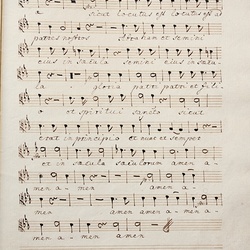 a Sicut locutus est locutus est ad
patres nostros Abraham et semini
eius in sæcula semini eius in sæcu-
la gloria patri patri et fili-
o et spiritui sancto sicut
erat in principio et nunc et semper
et in sæcula sæculorum amen a-
men amen amen a-
men amen amen amen a-
men a- men amen